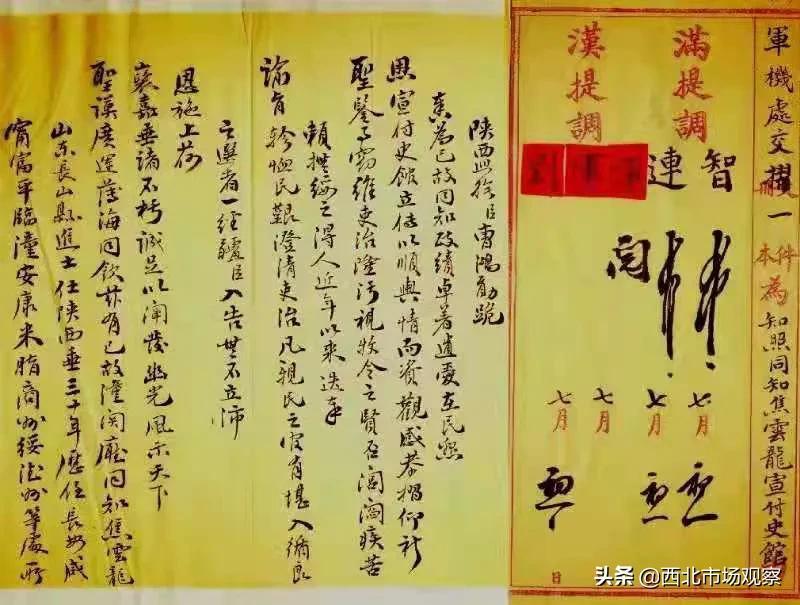 軍機處交摺一件為知照同知焦雲龍宣付史館
滿提調
智
連
七月
七月
漢提調
閱
七月
七月
日
陝西巡撫臣曹鴻勛跪
奏為已故同知政績卓著遺愛在民懇
恩宣付史館立傳以順輿情而資觀感恭摺仰祈
聖鑒事竊維吏治隆污視牧令之賢否閭閻疾苦
賴撫綏之得人近年以來迭奉
諭旨軫恤民艱澄清吏治凡親民之官有堪入循良
之選者一經疆臣入告無不立沛
恩施上荷
褒嘉垂諸不朽誠足以闡發幽光風示天下
聖謨廣運薄海同欽茲有已故潼關廳同知焦雲龍
山東長山縣進士任陝西垂三十年歷任長安咸
甯富平臨潼安康米脂商州綏德州等處所
头条 @西北市场观察